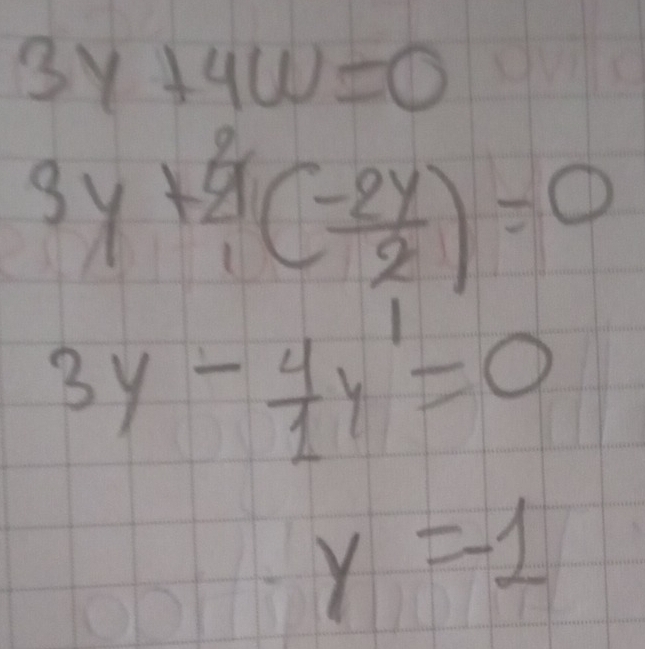 3y + 4w = 0
3y + 4 (-2y/2) = 0
3y - 4/1 y = 0
y = -1